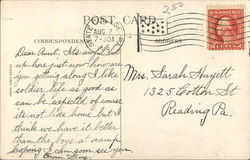 250
POST CARD
CORRESPONDENCE
ADDRESS
AUG 7
7-30A
Dear Aunt. Its awful hot
up hear just now how are
you getting along I like
soldier life as good as
can be expected of course
its not like home but I
think we have it better
than the boys at camp
hoping I can soon see you
From
Mrs. Sarah Huyett
1325 Cotton St
Reading Pa.